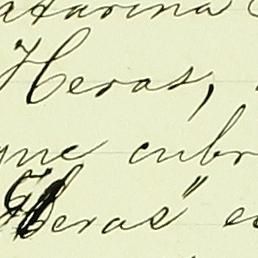 atarina
Heras,
que cubr
Heras"